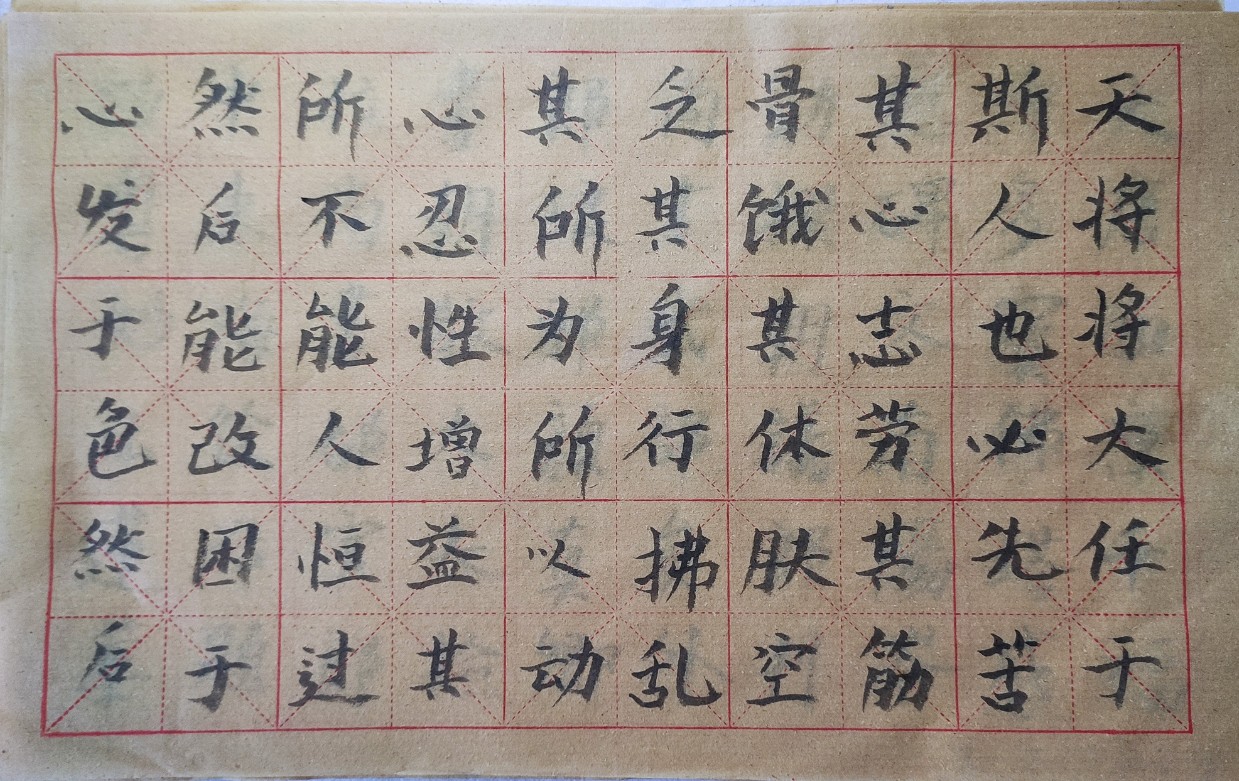 天将将大任于
斯人也必先苦
其心志劳其筋
骨饿其体肤空
乏其身行拂乱
其所为所以动
心忍性增益其
所不能人恒过
然后能改困于
心发于色然后